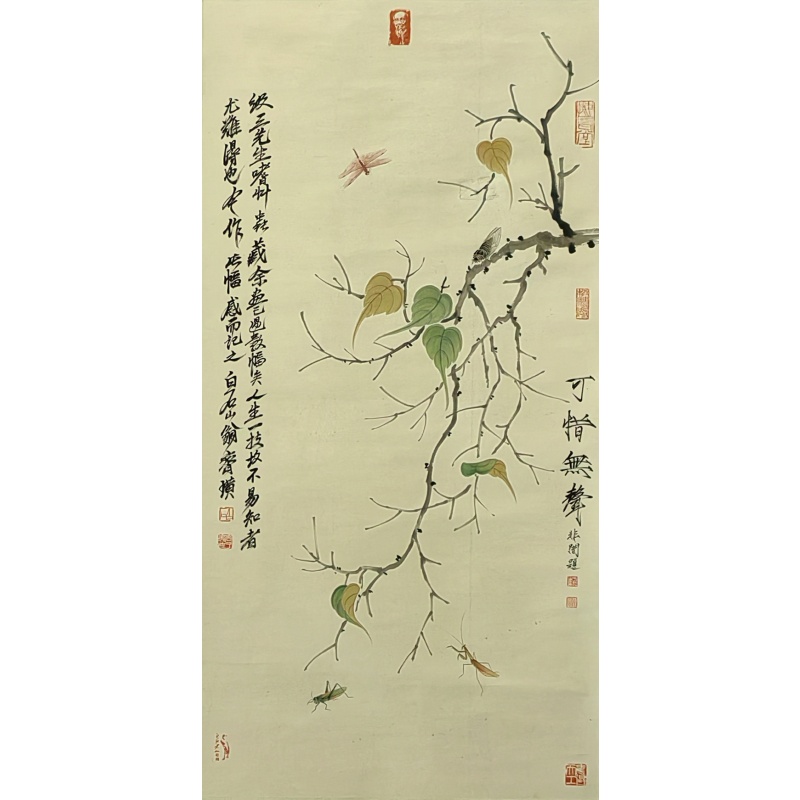 可惜無聲
非闇題
級三先生嗜艸蟲藏余畫已過數幅矣人生一技故不易知者
尤難得也作此幅感而記之白石山翁齊璜